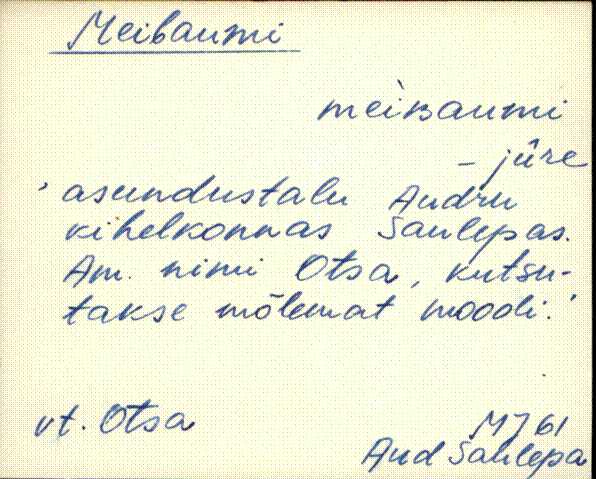 Meibaumi
mèiʙaumi
– jûre
'asundustalu Audru
kihelkonnas Saulepas.
Am. nimi Otsa, kutsu-
takse mõlemat moodi.'
vt. Otsa
MJ 61
Aud Saulepa